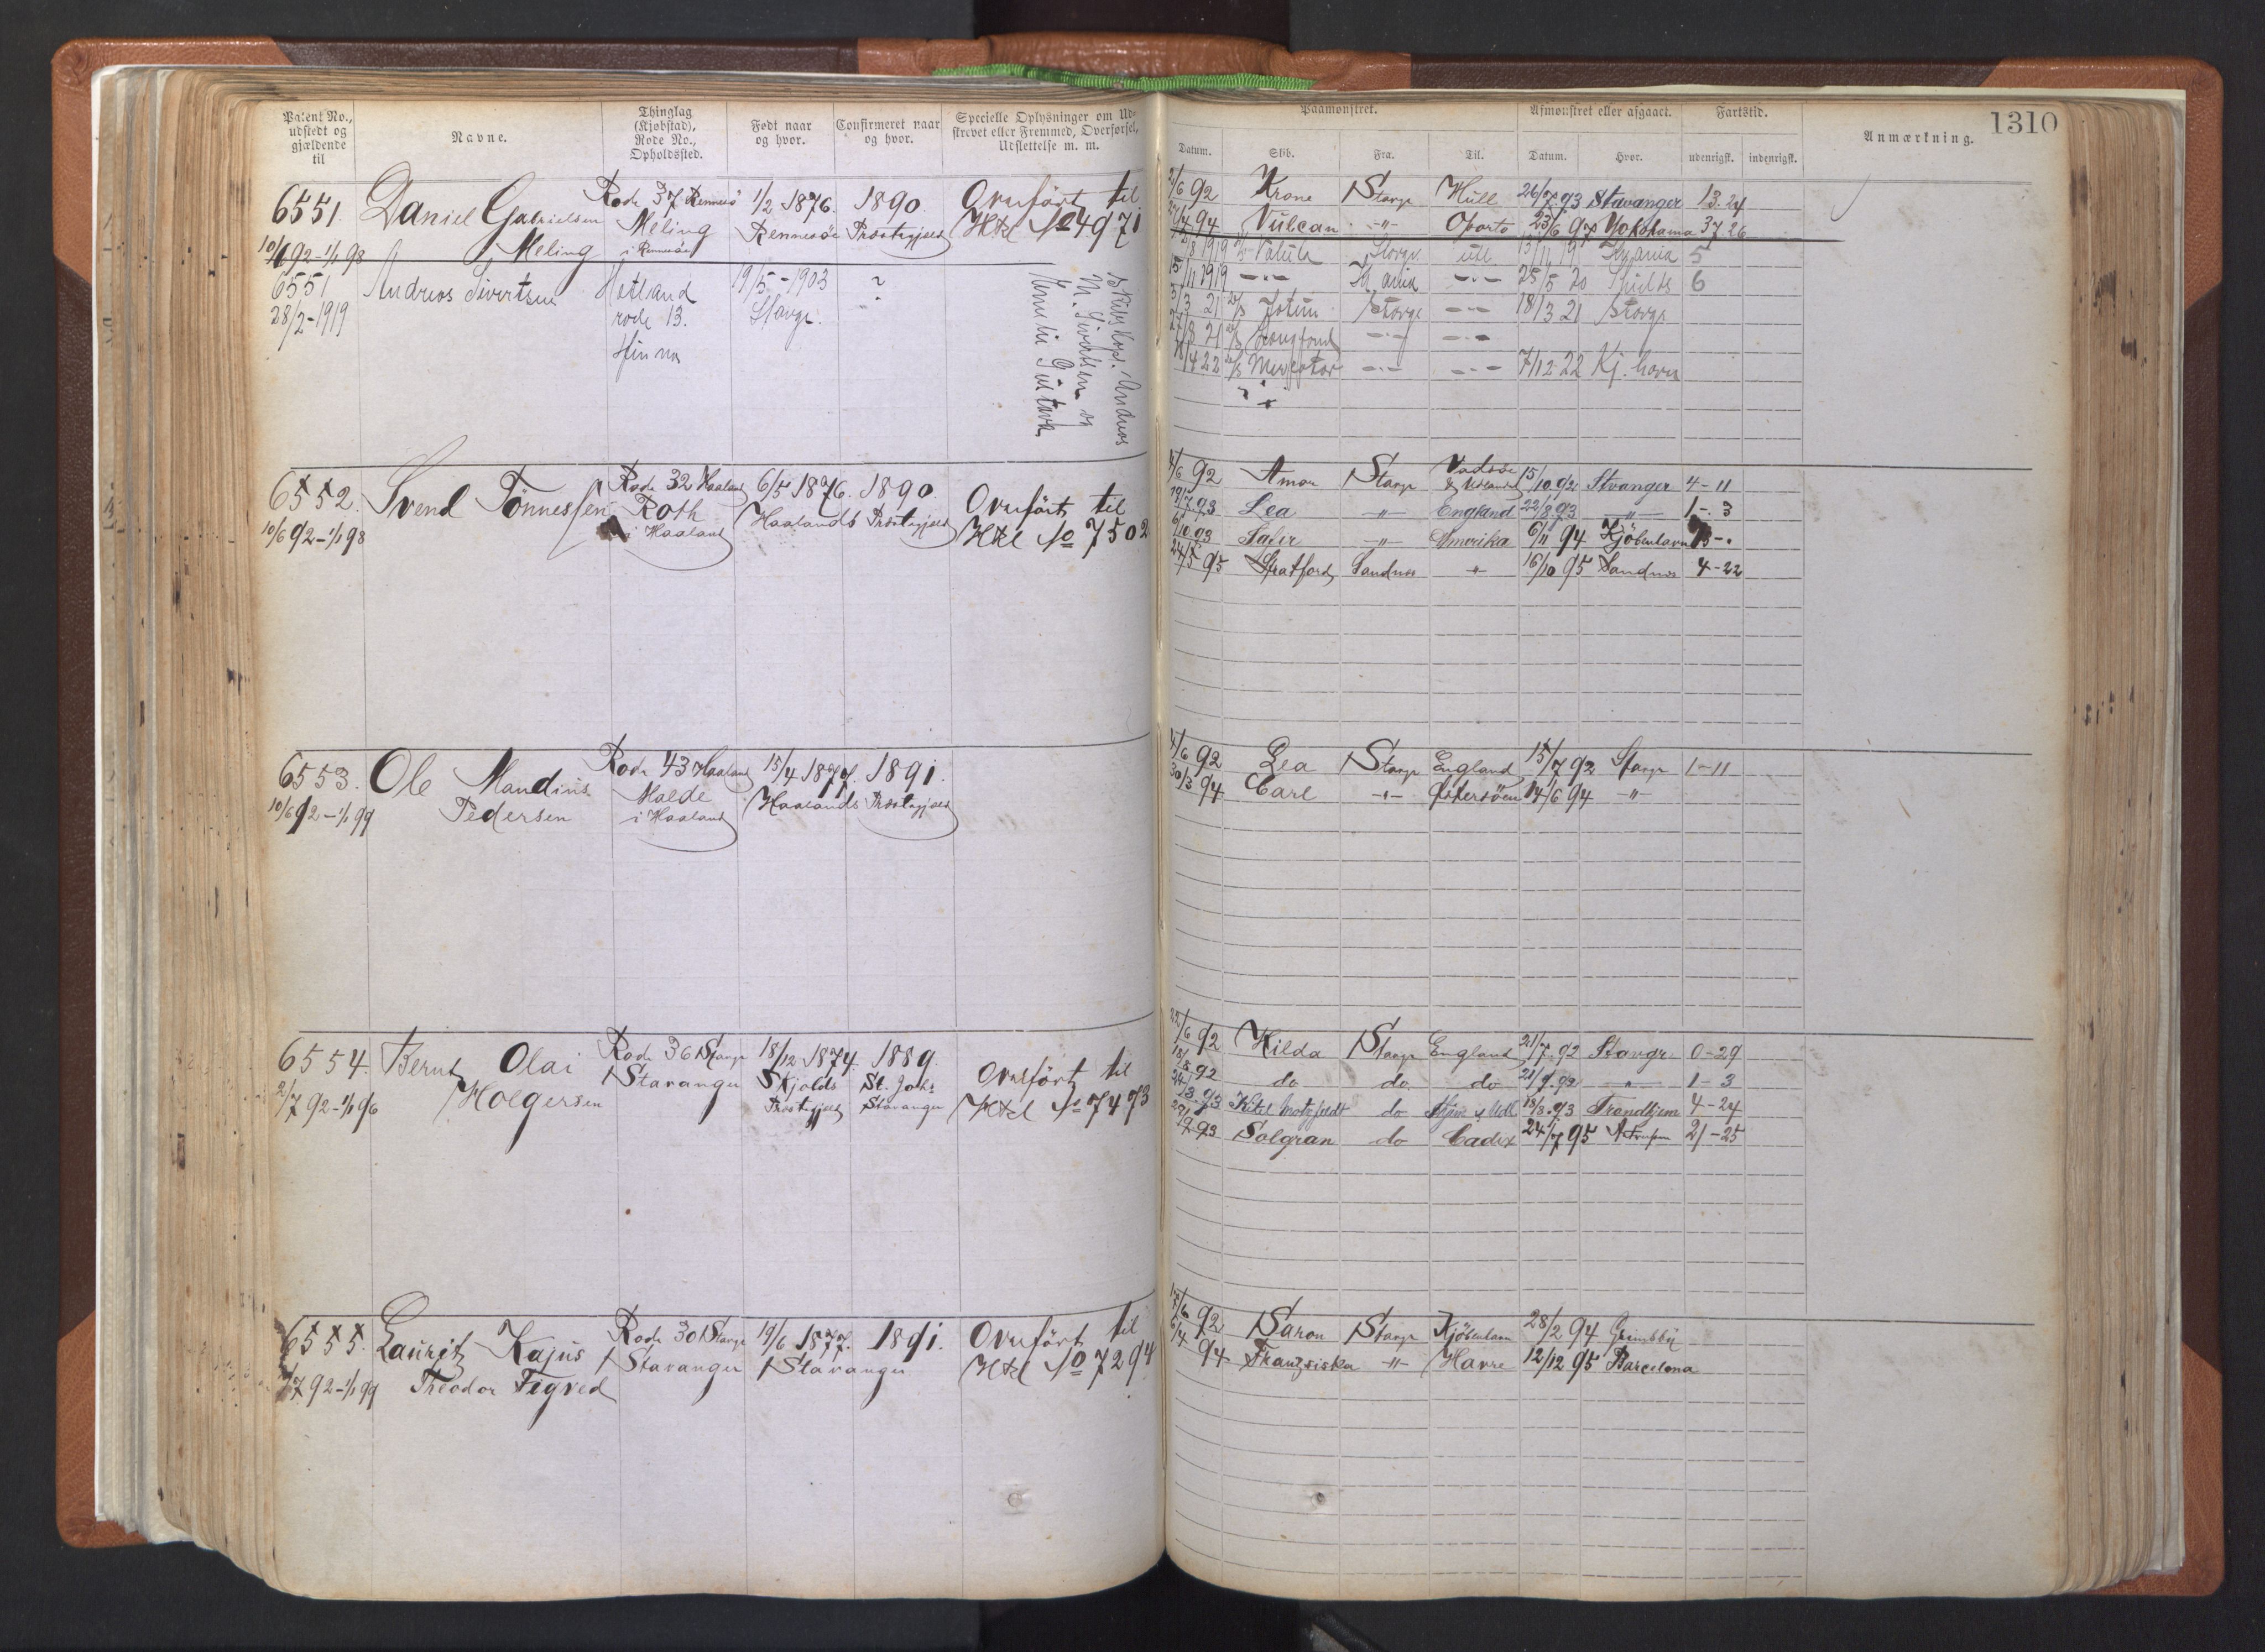 1310
Patent No., udstedt og gjældende til
Navne.
Thinglag (Kjøbstad), Rode No., Opholdssted.
Født naar og hvor.
Confirmeret naar og hvor.
Specielle Oplysninger om Udskrevet eller Fremmed, Overførsel, Udslettelse m. m.
Paamønstret.
Afmønstret eller afgaaet.
Fartstid.
Anmærkning.
Datum. Skib. Fra. Til. Datum. Hvor. udenrigsk. indenrigsk.
6551. Daniel Gabrielsen Rode 37 Rennesö 1/2 1876. 1890. Overført til
10/6 92-1/1 98 Meling Meling i Rennesö Rennesöe Præstegjæld Htel No 4971
2/6 92 Krone Stavgr Hull 26/7 93 Stavanger 13.24
94 Vulcan -"- Oporto 23/6 97 Yokohama 37.26
6551 Andreas Sivertsen Hetland 19/5-1903 ?
28/2-1919 rode 13. Stavgr.
Hinna
Andreas
M. Sivertsen og
Gustava
1919 Stavgr. utl 19 Kr.ania 5
15/11 1919 -"- Kr.ania -"- 25/5 20 Shields 6
3/3 21 Jotun Stavgr -"- 18/3 21 Stavgr
27/8 21 -"- -"-
4 22 -"- -"- 7/12 22 Kj.havn
6552. Svend Tönnessen Rode 32 Haaland 6/5 1876. 1890. Overført til
10/6 92-1/1 98 Roth i Haaland Haalands Præstegjæld Htel No 7502
4/6 92 Amor Stavgr Vadsöe & Udlandet 15/10 92 Stvanger 4-11
19/7 93 Lea -"- England 22/8 93 -"- 1-.3
6/10 93 -"- Amerika 6/11 94 Kjöbenhavn 13-.
24/5 95 Stratford Sandnes -"- 16/10 95 Sandnes 4-22
6553. Ole Mandius Rode 43 Haaland 15/4 1877. 1891.
10/6 92-1/1 99 Pedersen Malde i Haaland Haalands Præstegjæld
4/6 92 Lea Stavgr England 15/7 92 Stavgr 1-11
30/3 94 Carl -"- Östersöen 14/6 94 -"-
6554. Bernt Olai Rode 36 Stavgr 18/12 1874. 1889. Overført til
2/7 92-1/1 96 Holgersen Stavanger Skjolds Præstegjæld St. Joh: Stavanger Htel No 7493
22/6 92 Hilda Stavgr England 21/7 92 Stavgr. 0-29
18/8 92 do do do 21/9 92 -"- 1-3
24/3 93 Ketel do 18/8 93 Trondhjem 4-24
29/9 93 Solgran do Cadix 24/7 95 21-25
6555. Laurits Kajus Rode 30 Stavgr 19/6 1877. 1891. Overført til
7 92-1/1 99 Theodor Tegred Stavanger Stavanger Htel No 7294
17/6 92 Saron Stavgr Kjöbenhavn 28/2 94 Grimsby
6/4 94 Franzsiska -"- Havre 12/12 95 Barcelona